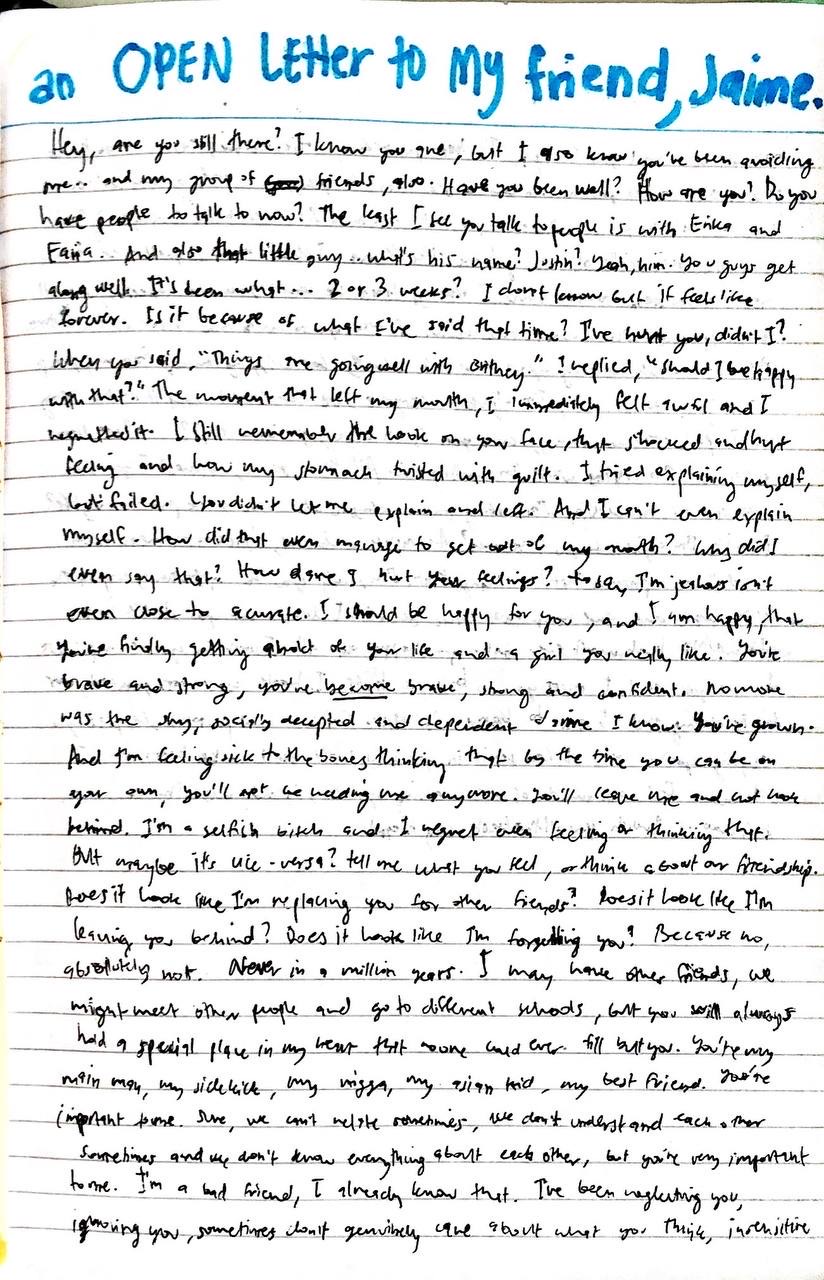 an OPEN LETTER to My friend, Jaime.
Hey, are you still there? I know you are, but I also know you've been avoiding
me... and my group of friends, also. Have you been well? How are you? Do you
have people to talk to now? The least I see you talk to people is with Erika and
And also that little guy.. what's his name? Justin? Yeah, him. You guys get
along well. It's been what... 2 or 3 weeks? I don't know but it feels like
forever. Is it because of what I've said that time? I've hurt you, didn't I?
When you said, "Things are going well with Britney." I replied, "Should I be happy
with that?" The moment that left my mouth, I immediately felt awful and I
regretted it. I still remember the look on your face, that shocked and hurt
feeling and how my stomach twisted with guilt. I tried explaining myself,
but failed. You didn't let me explain and left. And I can't even explain
myself. How did that even manage to get out of my mouth? Why did I
even say that? How dare I hurt your feelings? To say, I'm jealous isn't
even close to accurate. I should be happy for you, and I am happy, that
you're finally getting ahold of your life and a girl you really like. You're
brave and strong, you've become brave, strong and confident. No more
was the shy, socially and dependent Jaime I know. You've grown.
And I'm feeling sick to the bones thinking that by the time you can be on
your own, you'll not be needing me anymore. You'll leave me and not look
behind. I'm a selfish bitch and I regret even feeling or thinking that.
But maybe it's vice-versa? Tell me what you feel, or think about our friendship.
Does it look like I'm replacing you for other friends? Does it look like I'm
leaving you behind? Does it look like I'm forgetting you? Because no,
absolutely not. Never in a million years. I may have other friends, we
might meet other people and go to different schools, but you will always
had a special place in my heart that noone could ever fill but you. You're my
main man, my sidekick, my nigga, my asian kid, my best friend. You're
important to me. Sure, we can't relate sometimes, we don't understand each other
sometimes and we don't know everything about each other, but you're very important
to me. I'm a bad friend, I already know that. I've been neglecting you,
ignoring you, sometimes don't genuinely care about what you think, insensitive